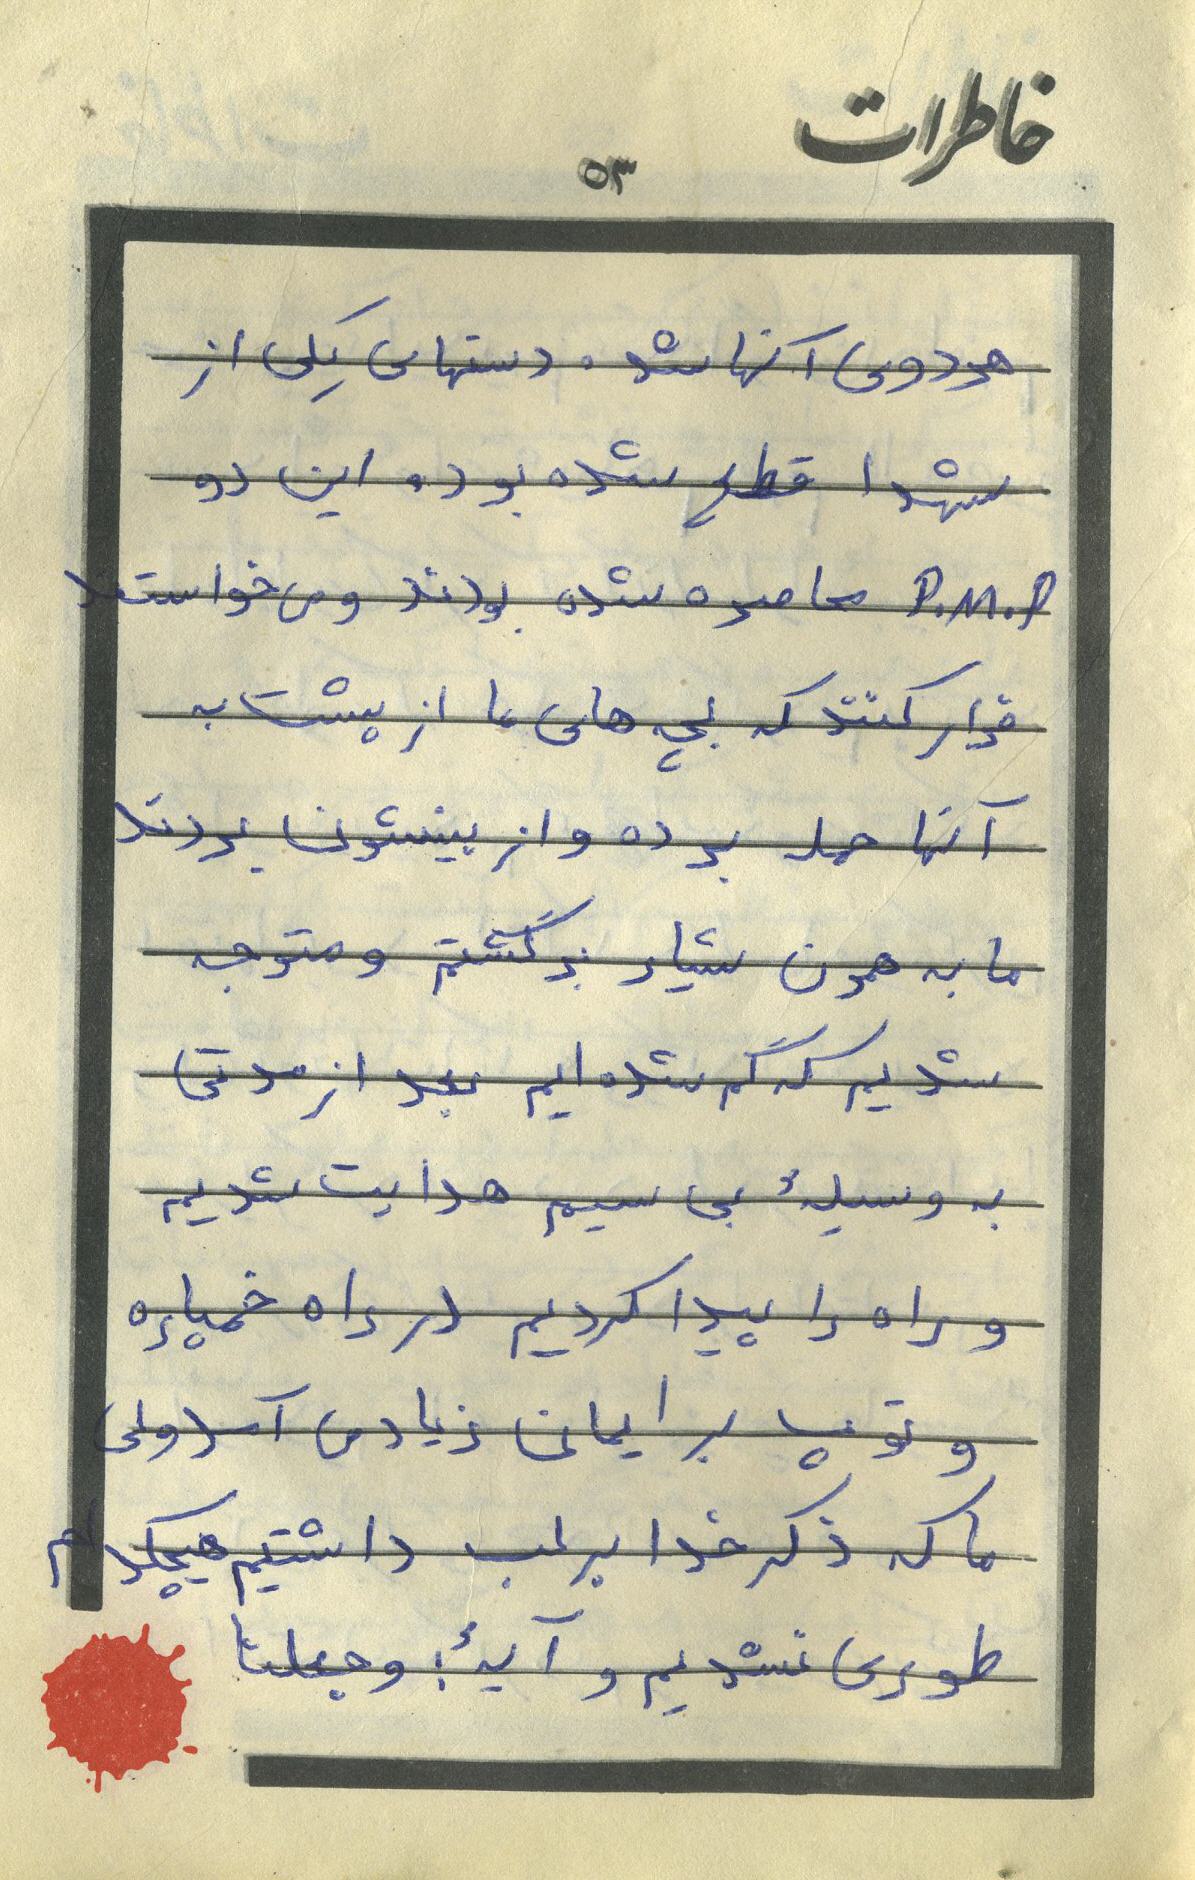 خاطرات
۵۳
هردوی آنها شد. دستهای یکی از
شهدا قطع شده بود. این دو
P.M.P محاصره شده بودند و می خواستند
فرار کنند که بچه های ما از پشت به
آنها حمله برده و از بینشون بردند
ما به همون شیار برگشتم و متوجه
شدیم که گم شده ایم بعد از مدتی
به وسیلهٔ بی سیم هدایت شدیم
و راه را پیدا کردیم در راه خمپاره
و توپ برایمان زیادی آمد ولی
ما که ذکر خدا بر لب داشتیم هیچکدام
طوری نشدیم و آیهٔ: وجعلنا